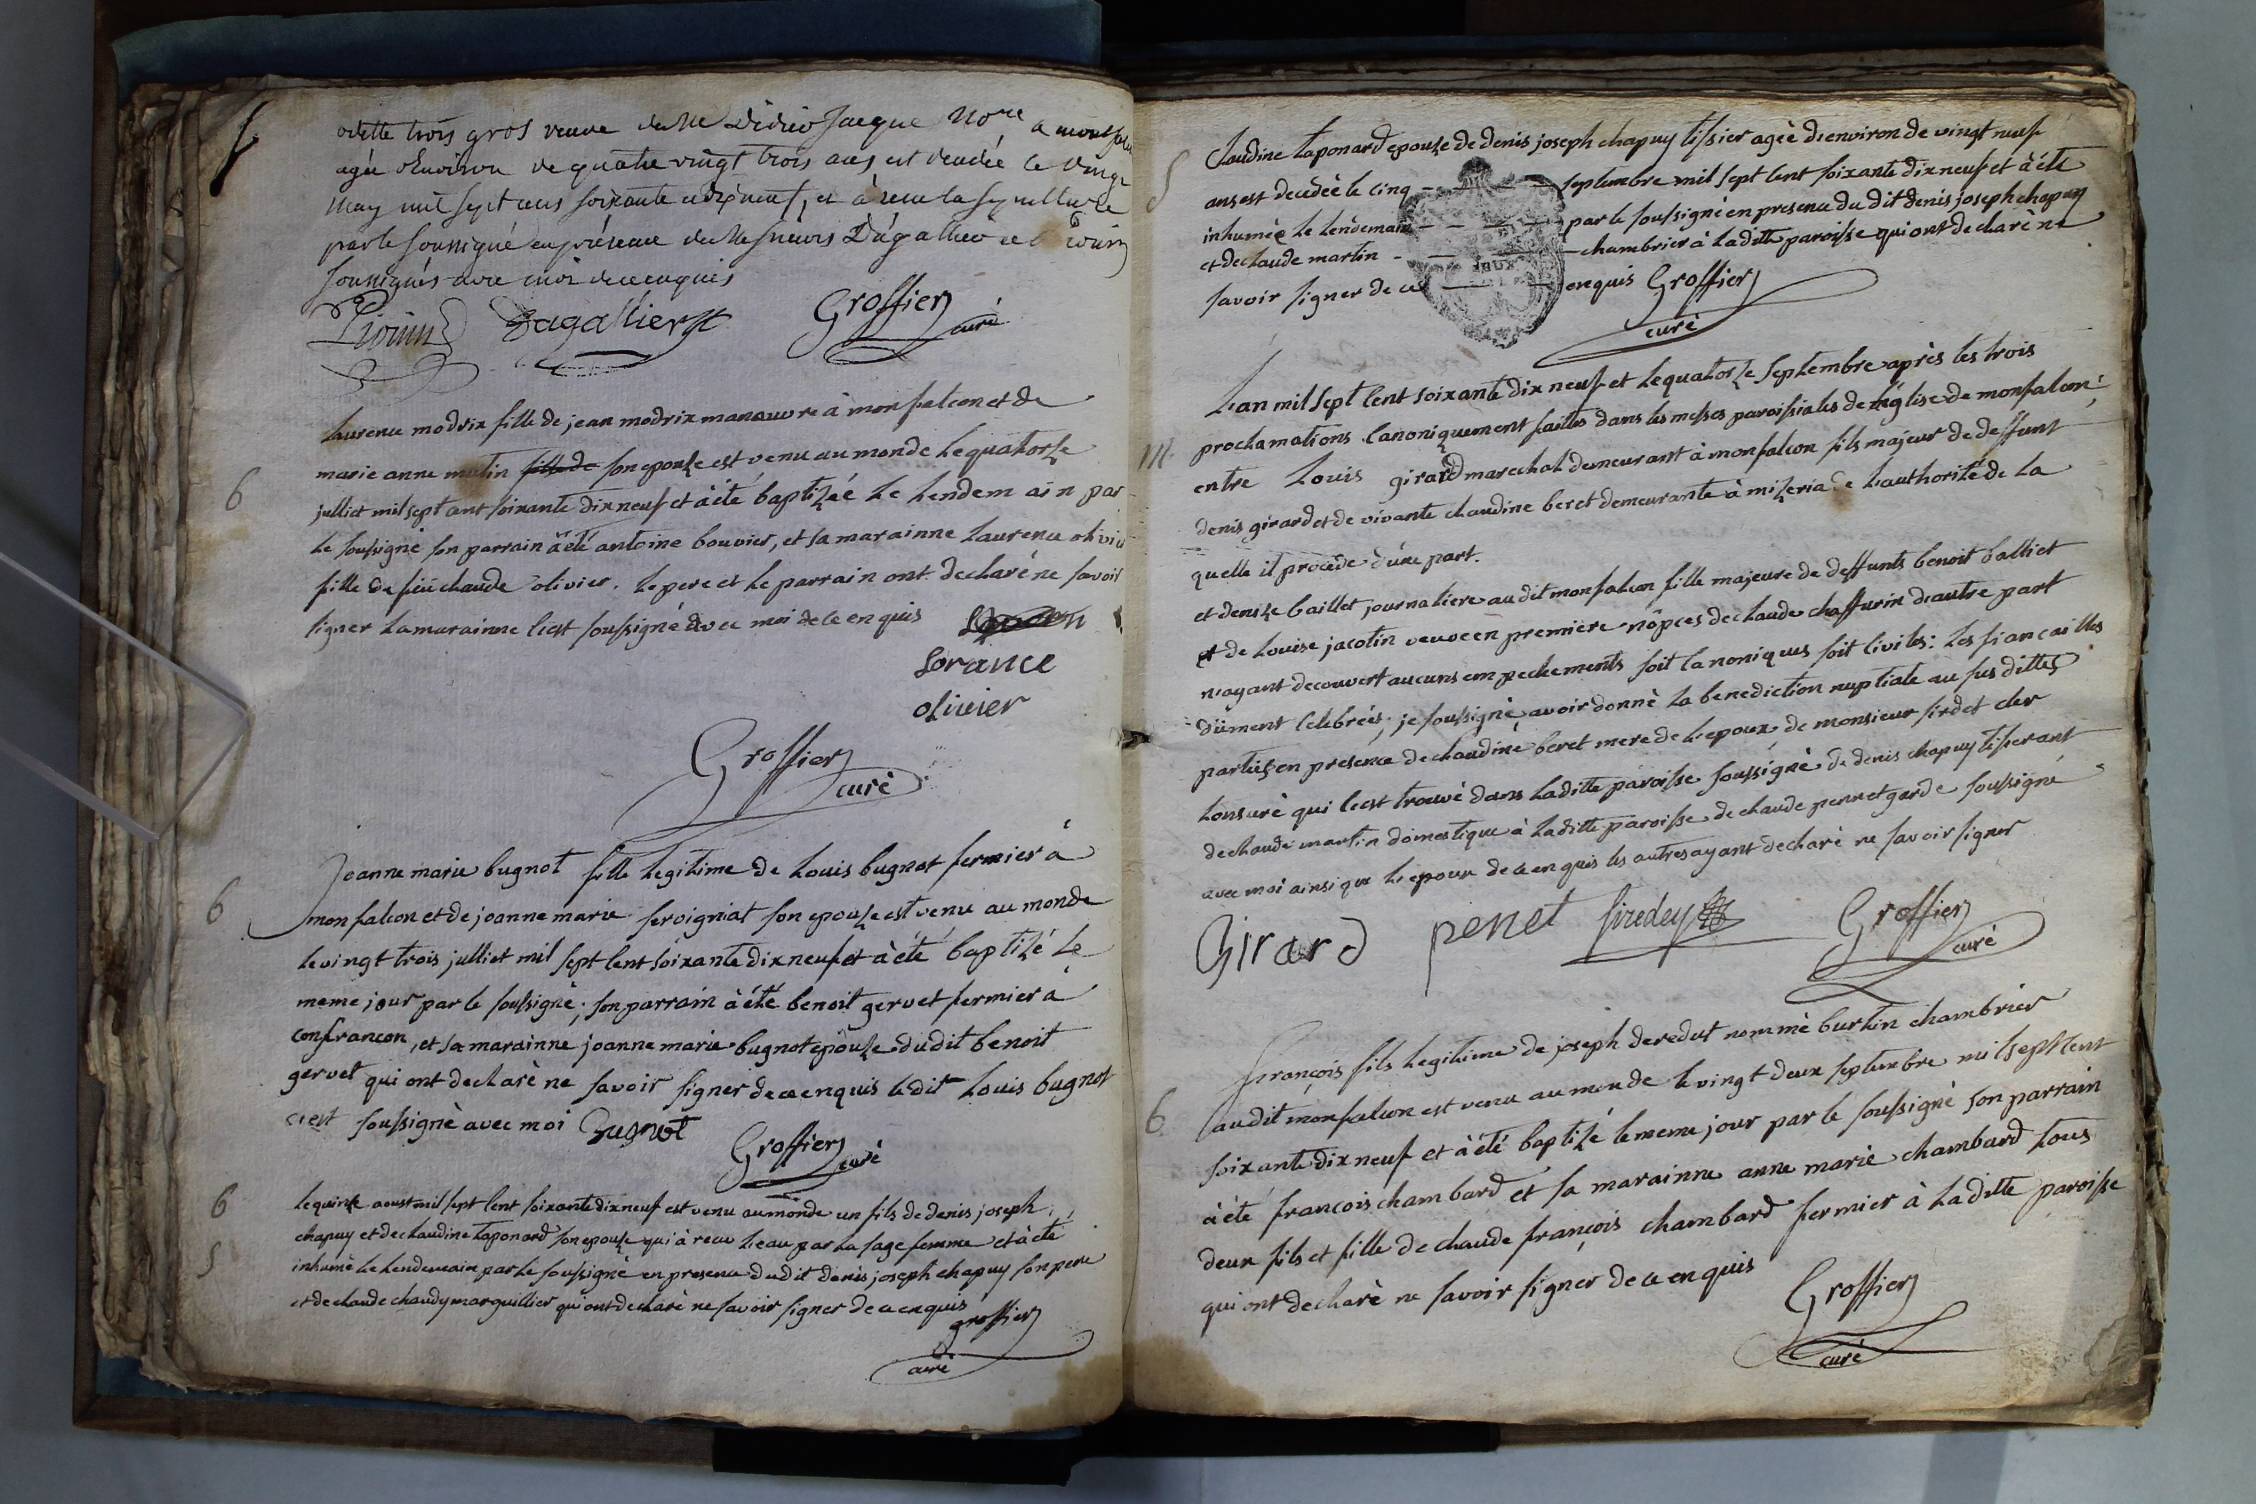 odette trois gros veuve de Me Didier Jacque Nore a montfalcon
agée denviron de quatre vingt trois ans est decedée le vingt
may mil sept cens soixante et dix neuf, et a recu la sepulture
par le soussigné en présence de Mes sieurs Dagallier et Pivion
soussignés avec moi de ce enquis
Dagallier Groffier
curé
laurence modrix fille de jean modrix manauvre à monfalcon et de
6 marie anne mutin fille de son epouse est venu au monde le quatorse
julliet mil sept cent soixante dix neuf et à été baptisée le lendemain par
le soussigné son parrain à été antoine bouvier, et sa marainne laurence olivier
fille de feü claude olivier. le pere et le parrain ont declaré ne savoir
signer la marainne cest soussigné avec moi de ce enquis
Lorance
olivier
Groffier
curé
6 Joanne marie bugnot fille legitime de Louis bugnot fermier à
monfalcon et de joanne marie feroigniat son epouse est venu au monde
le vingt trois julliet mil sept cent soixante dix neuf et à été baptisé le
meme jour par le soussigné; son parrain à été benoit gervet fermier à
confrancon, et sa marainne joanne marie bugnot epouse dudit benoit
gervet qui ont declaré ne savoir signer de ce enquis ledit Louis bugnot
cest soussigné avec moi Bugnot
Groffier
curé
6 le quinse aoust mil sept cent soixante dix neuf est venu au monde un fils de denis joseph
S chapuy et de claudine laponard son epouse qui à recu l'eau par la sage femme et à été
inhumé le lendemain par le soussigné en presence dudit denis joseph chapuy son pere
et de claude chaudy marguillier qui ont declaré ne savoir signer de ce enquis
groffier
curé
S Claudine laponard epouse de denis joseph chapuy tissier agée d'environ de vingt neuf
ans est decedée le cinq septembre mil sept cent soixante dix neuf et à été
inhumée le lendemain par le soussigné en presence du dit denis joseph chapuy
et de claude martin chambrier à laditte paroisse qui ont declaré ne
savoir signer de ce enquis Groffier
curé
L'an mil sept cent soixante dix neuf et le quatorse septembre après les trois
m. proclamations canoniquement faittes dans les messes paroissiales de l'église de monfalcon:
entre Louis girard marechal demeurant à monfalcon fils majeur de deffunt
denis girard et de vivante claudine beret demeurante à miseria de l'authorité de la
quelle il procède d'une part.
et denise baillet journaliere audit monfalcon fille majeure de deffunts benoit balliet
et de Louise jacolin veuve en premiere nôpces de claude chaffurin d'autre part
n'ayant decouvert aucuns empechements soit canoniques soit civiles: les fiancailles
düment celebrées; je soussigné avoir donné la benediction nuptiale au susdittes
parties en présence de claudine beret mere de l'epoux de monsieur sirdet cler
tonsuré qui cest trouvé dans laditte paroisse soussigné de denis chapuy tisserant
de claude martin domestique à laditte paroisse de claude pennet garde soussigné
avec moi ainsi que l'epoux de ce enquis les autres ayant declaré ne savoir signer
Girard penet siredey Groffier
curé
françois fils legitime de joseph deredut nommé burtin chambrier
6 audit monfalcon est venu au monde le vingt deux septembre mil sept cent
soixante dix neuf et à été baptisé le meme jour par le soussigné son parrain
à été francois chambard et sa marainne anne marie chambard tous
deux fils et fille de claude françois chambard fermier à laditte paroisse
qui ont declaré ne savoir signer de ce enquis
Groffier
curé